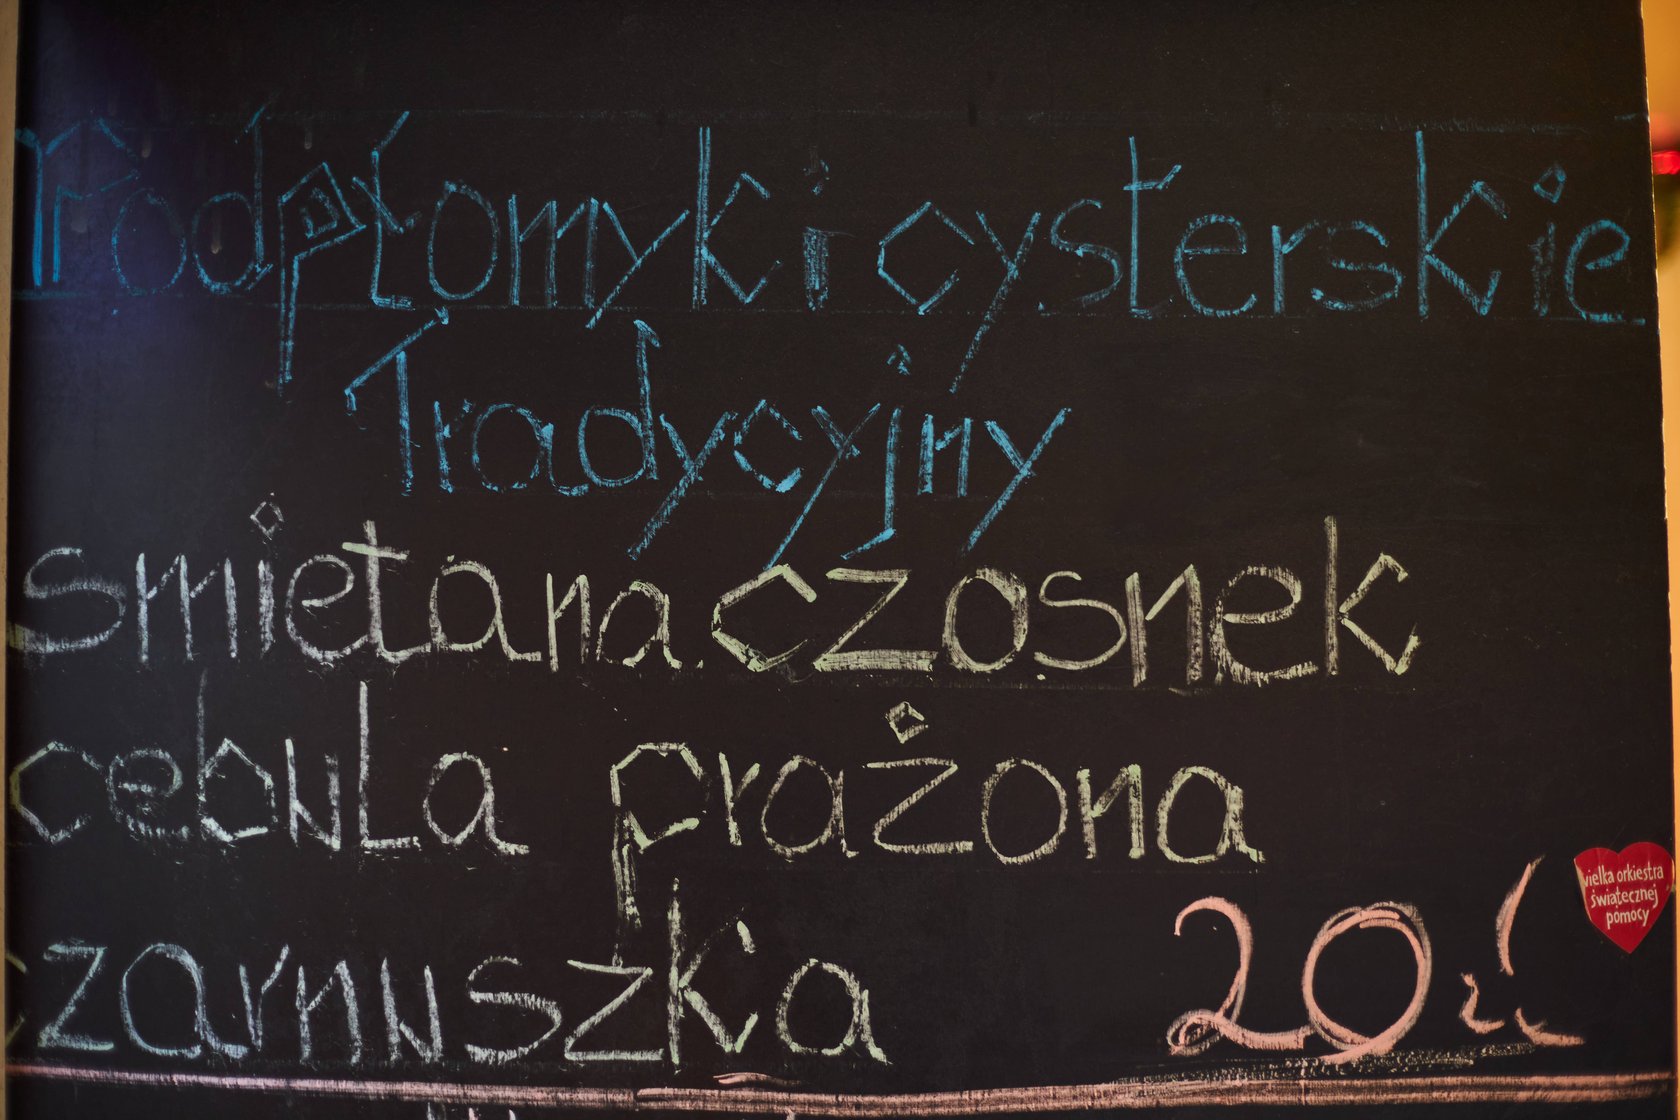 Podpłomyki cysterskie
Tradycyjny
smietana czosnek
cebula prażona
czarnuszka 20 zł
wielka orkiestra
świątecznej
pomocy